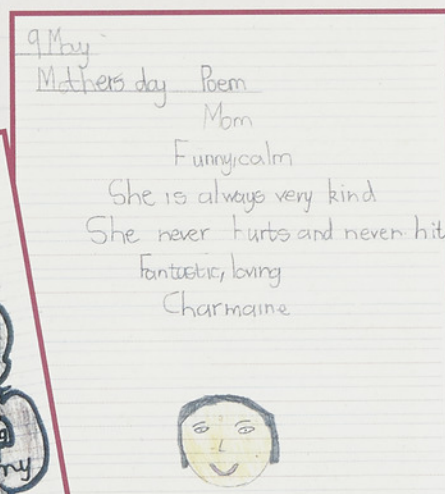 9 May
Mothers day Poem
Mom
Funny,calm
She is always very kind
She never hurts and never hit
Fantastic, loving
Charmaine
ny